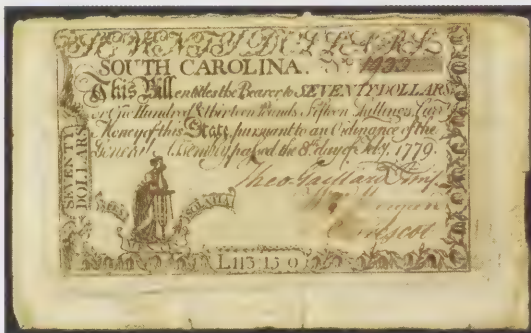 SEVENTY DOLLARS
SOUTH CAROLINA. No 1933
This Bill entitles the Bearer to SEVENTY DOLLARS
or One Hundred & thirteen Pounds Fifteen Shillings Curr.t
Money of this State, pursuant to an Ordinance of the
General Assembly passed the 8th day of Feby. 1779.
SEVENTY
DOLLARS
Theo Gaillard Junr
SOLATIA
L113 15 0